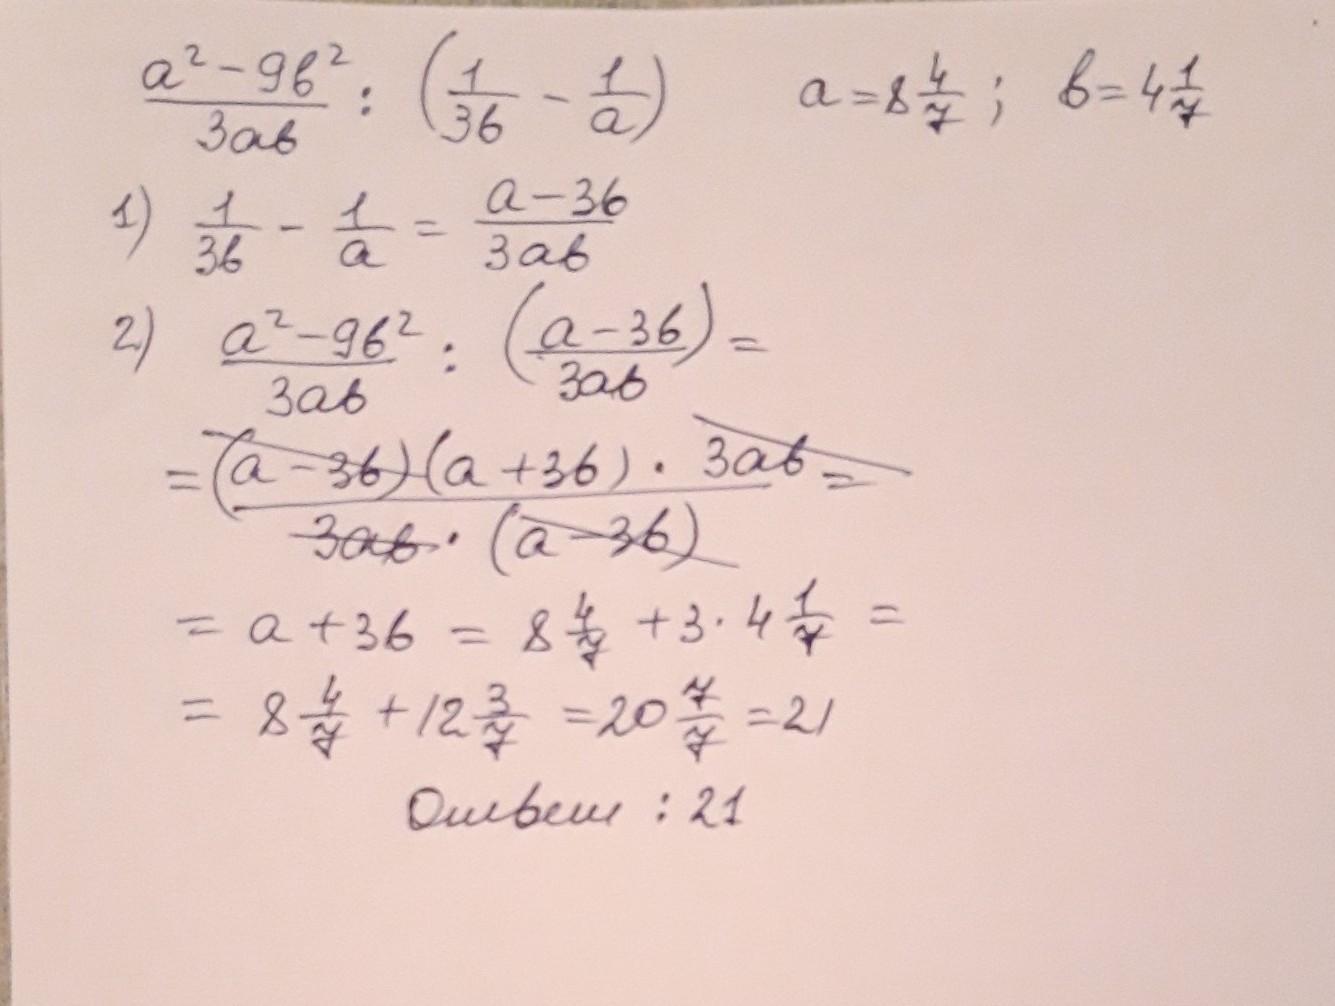 (a² - 9b²)/(3ab) : (1/(3b) - 1/a)    a = 8 4/7 ;  b = 4 1/7
1) 1/(3b) - 1/a = (a - 3b)/(3ab)
2) (a² - 9b²)/(3ab) : ((a - 3b)/(3ab)) =
= ((a - 3b)(a + 3b) · 3ab)/(3ab · (a - 3b)) =
= a + 3b = 8 4/7 + 3 · 4 1/7 =
= 8 4/7 + 12 3/7 = 20 7/7 = 21
Ответ : 21